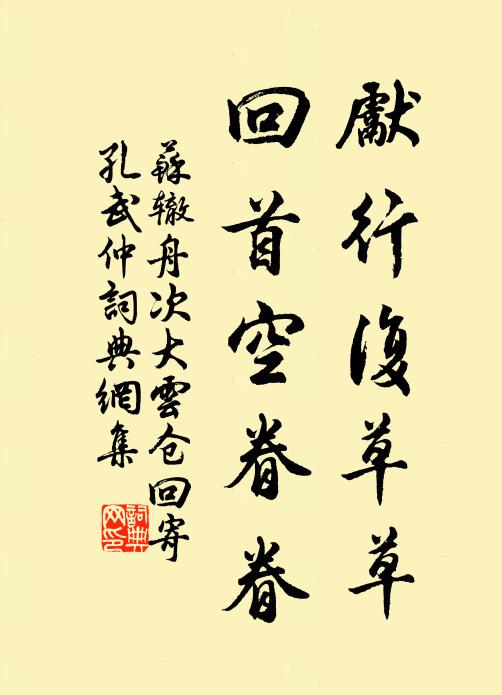 獻行復草草
回首空眷眷
蘇辙舟次大雲仓回寄
孔武仲詞典網集
詞典
网印